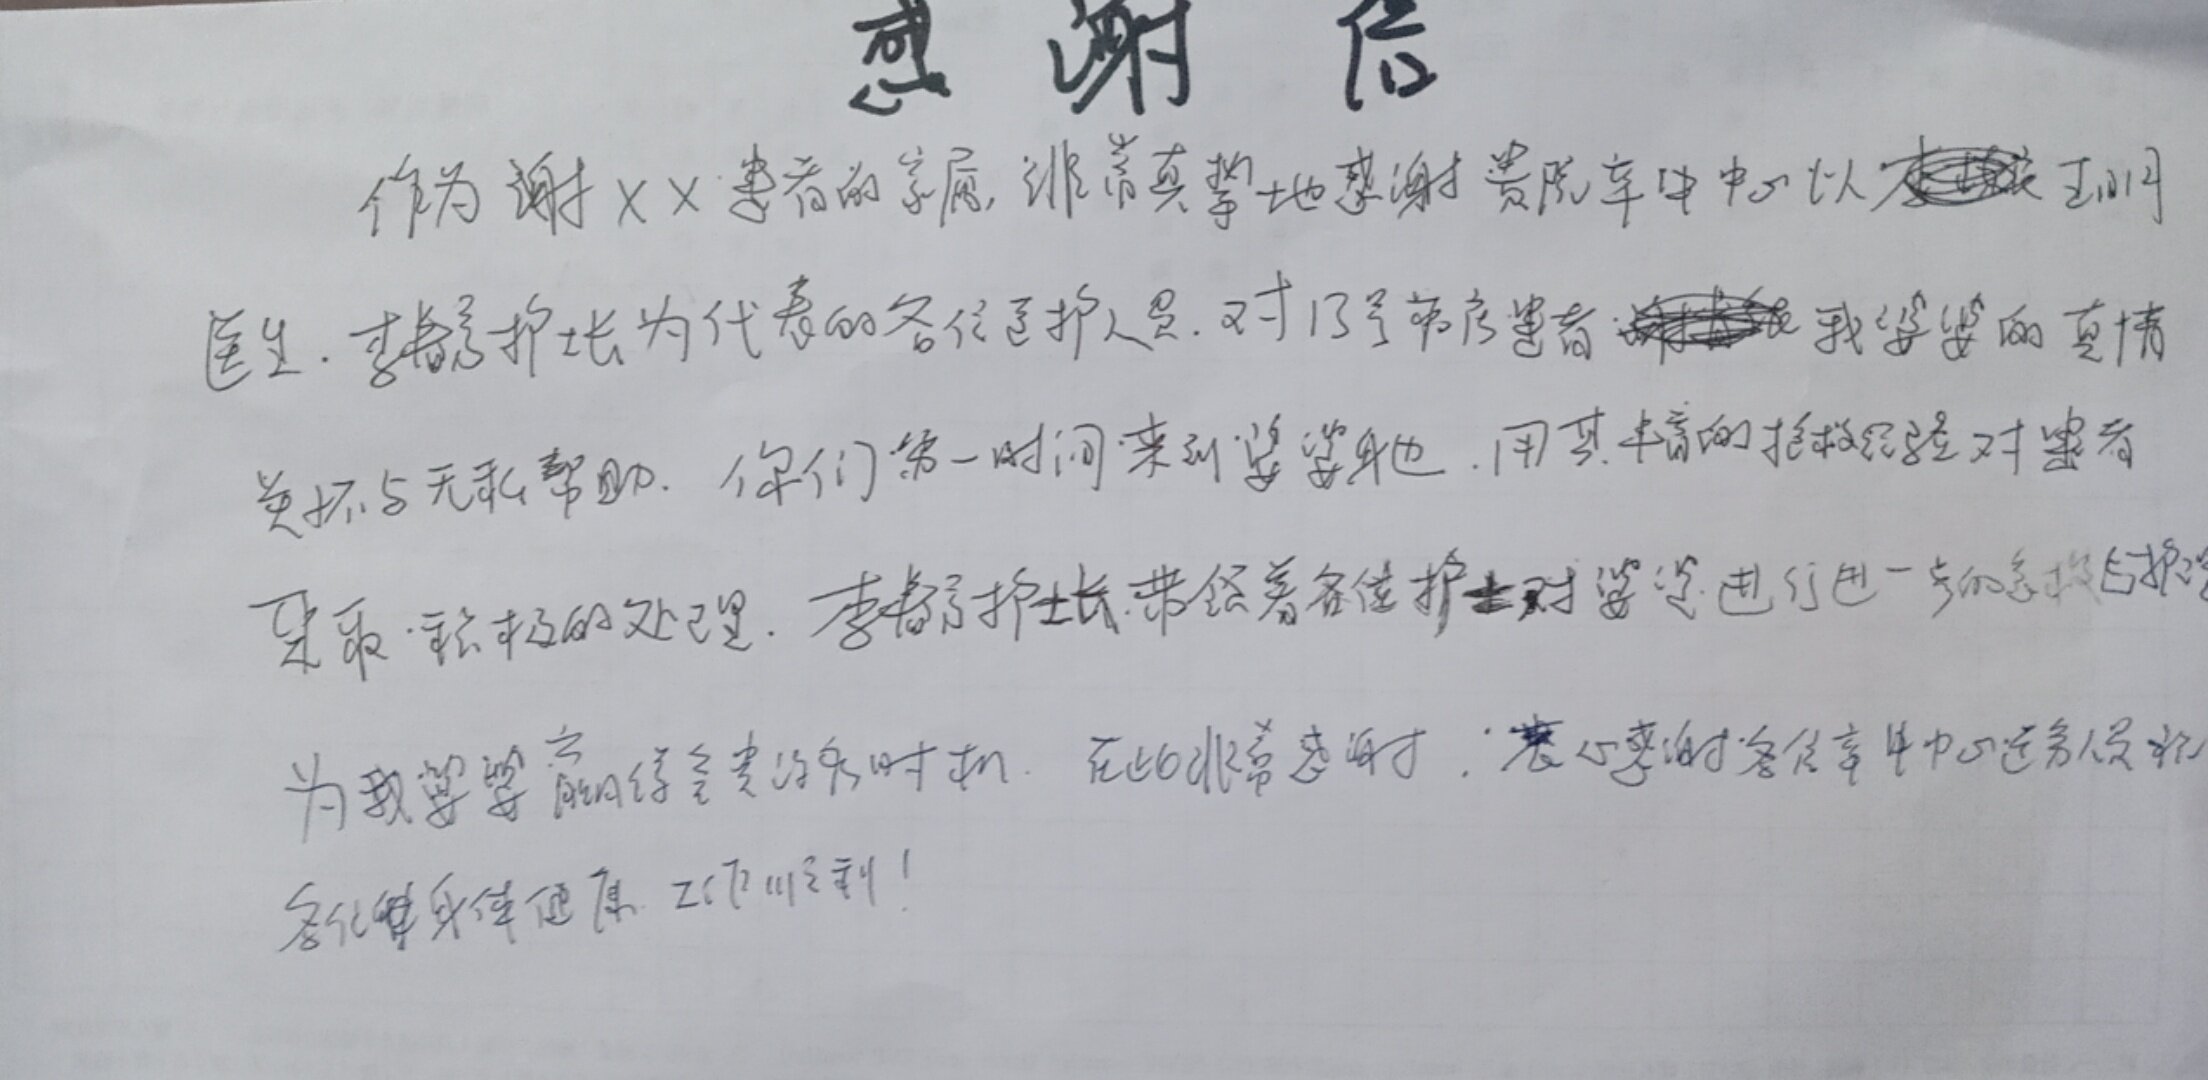 感谢信
作为谢XX患者的家属,非常真挚地感谢贵院卒中中心以王
医生.李春 护士长为代表的各位医护人员.对13号病房患者 我婆婆的真情
关怀与无私帮助.你们第一时间来到婆婆身边.用其丰富的抢救经验对患者
采取积极的处理.李春 护士长带领着各位护士对婆婆进行进一步的急救与护理
为我婆婆赢得宝贵治疗时机.在此非常感谢,衷心感谢各位卒中中心医务人员祝
各位身体健康.工作顺利!